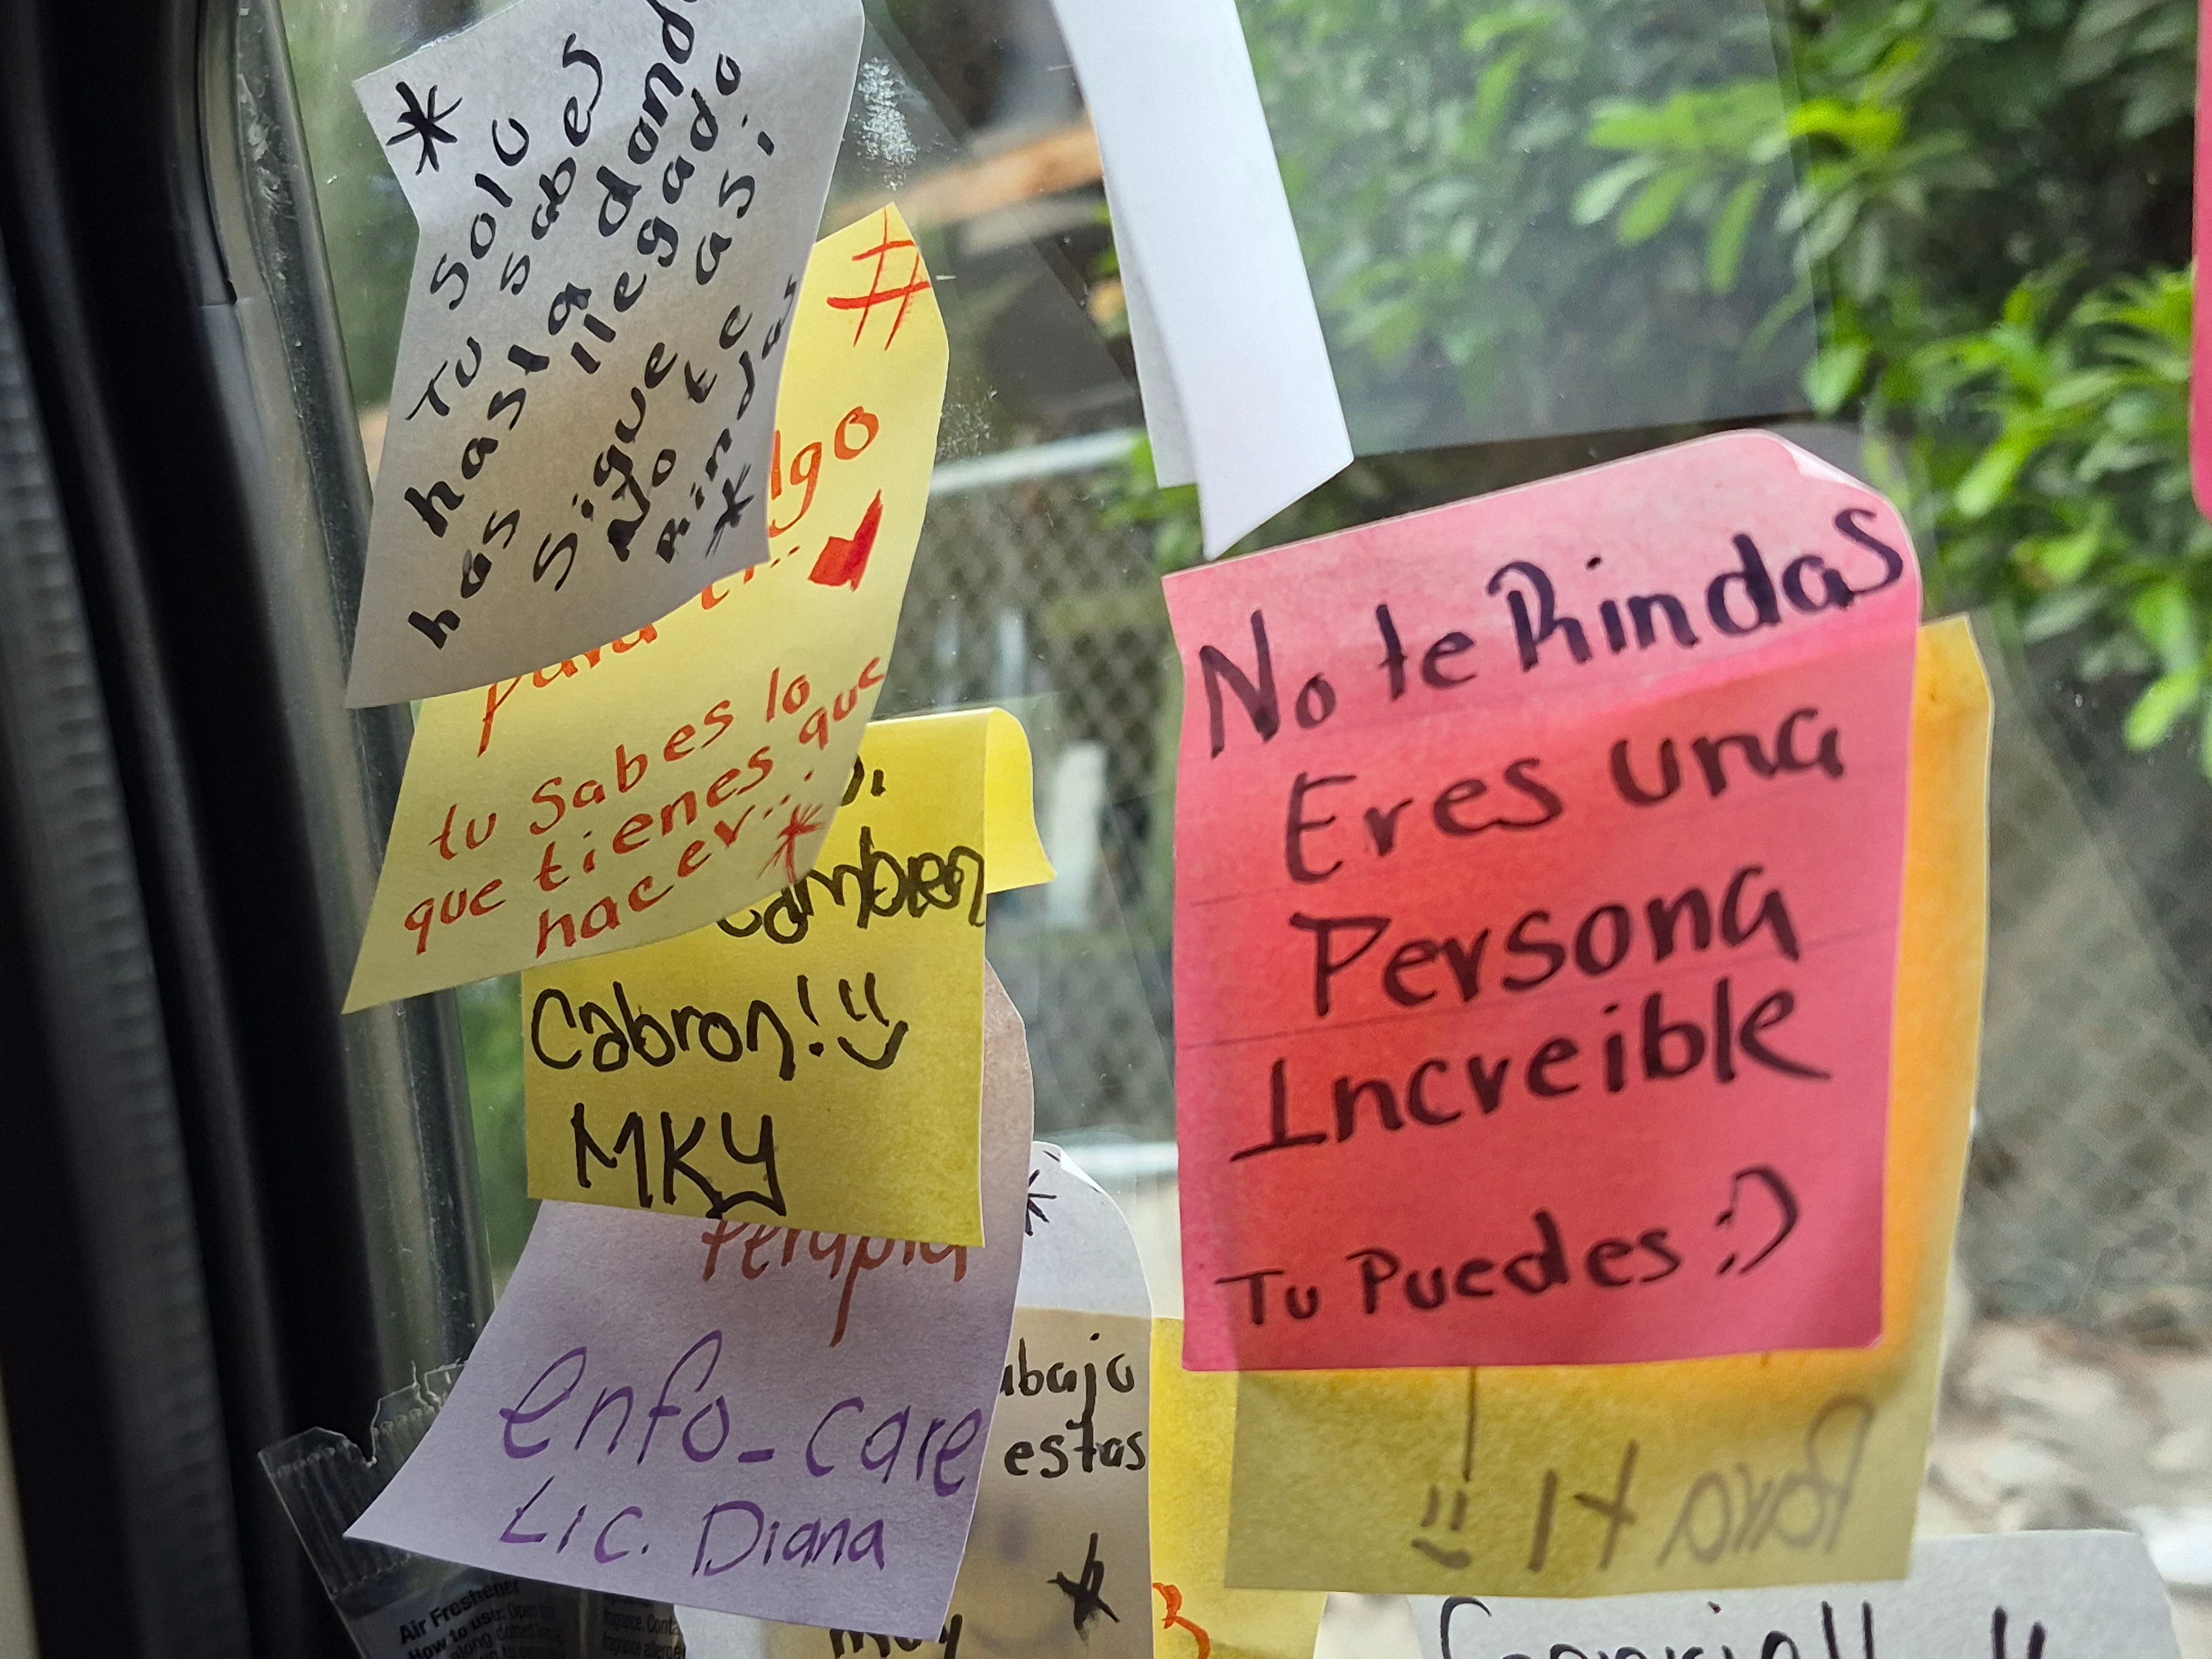 *
Solo
Tu sabes
hasta donde
has llegado
Sigue asi
No te
rindas
*
#
algo
para ti
tu Sabes lo
que tienes que
hacer...
*
Cabron! :)
MKY
terapia
enfo_care
Lic. Diana
*
estas
No te Rindas
Eres una
Persona
Increible
Tu Puedes :)
Para ti
Air Freshener
How to use: Open
along dotted line